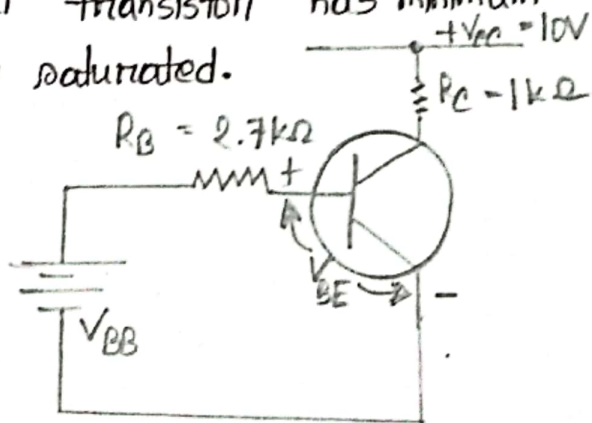 transiston has minimum
saturated.
+VCC = 10V
RC - 1kΩ
RB = 2.7kΩ
+
VBE
-
VBB